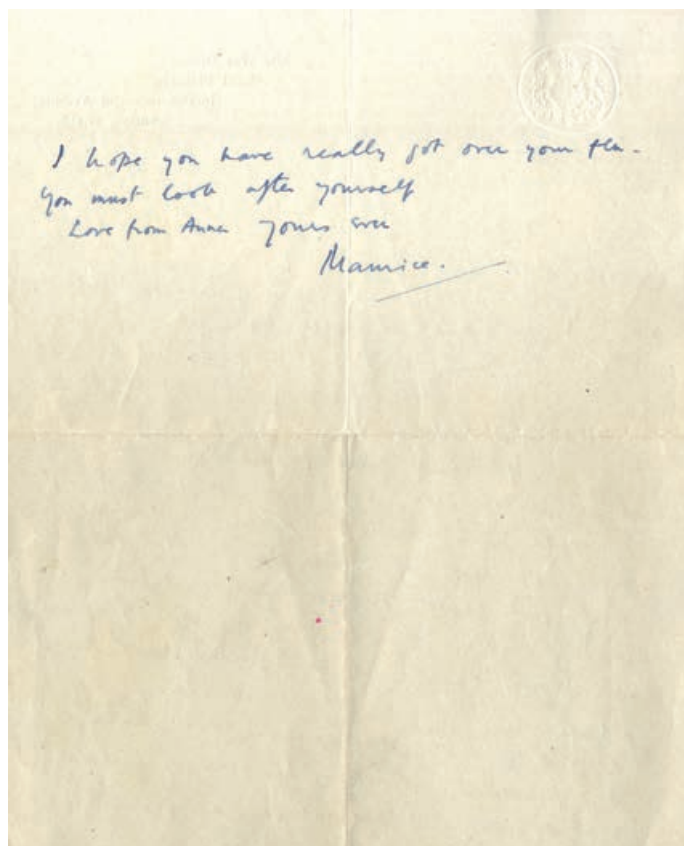 I hope you have really got over your flu.
You must look after yourself
Love from Anna yours ever
Maurice.